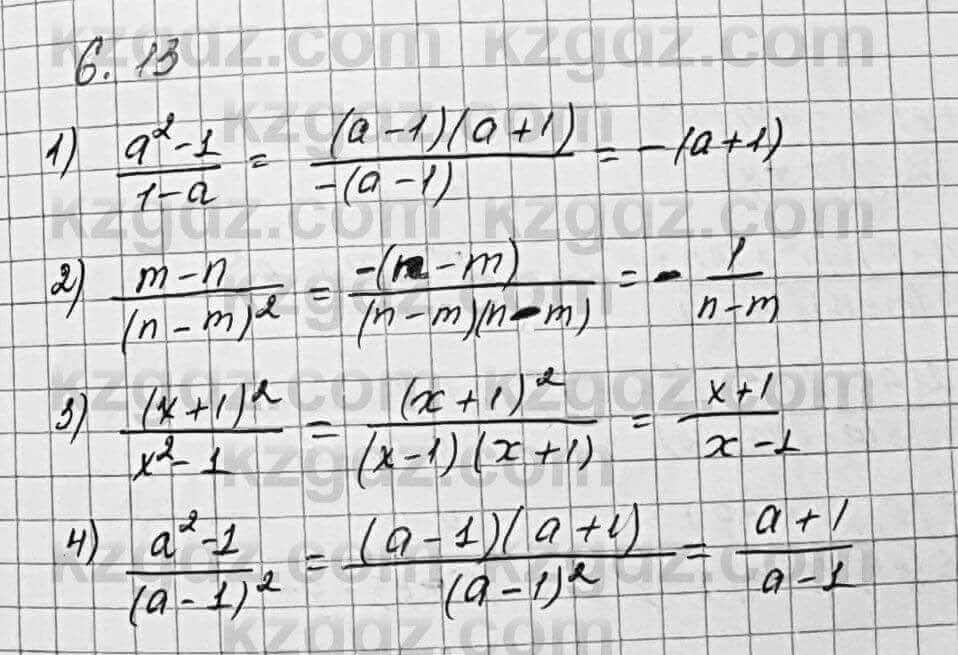 6.13
1) (a²-1)/(1-a) = ((a-1)(a+1))/(-(a-1)) = -(a+1)
2) (m-n)/((n-m)²) = (-(n-m))/((n-m)(n-m)) = - 1/(n-m)
3) ((x+1)²)/(x²-1) = ((x+1)²)/((x-1)(x+1)) = (x+1)/(x-1)
4) (a²-1)/((a-1)²) = ((a-1)(a+1))/((a-1)²) = (a+1)/(a-1)